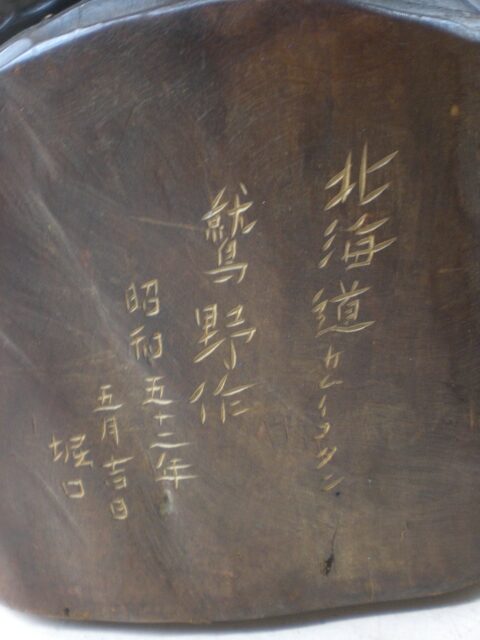 北海道ケイヌタン
鷲野作
昭和五十二年
五月吉日
堀口